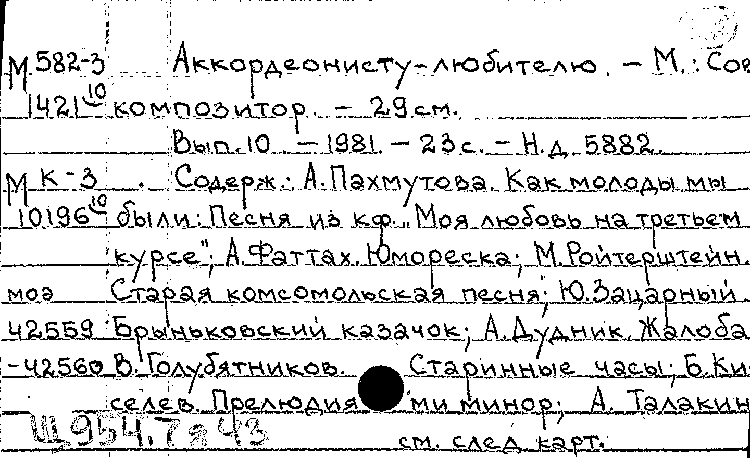 М 582-3 Аккордеонисту-любителю. - М.: Сов
1421 10 композитор. - 29 см.
Вып. 10. - 1981. - 23 с. - Н.д. 5882.
М К-3 . Содерж.: А. Пахмутова. Как молоды мы
10196 10 были: Песня из кф. „Моя любовь на третьем
курсе"; А. Фаттах. Юмореска; М. Ройтерштейн.
моз Старая комсомольская песня; Ю. Зацарный.
42559 Брыньковский казачок; А. Дудник. Жалоба
-42560 В. Голубятников. Старинные часы; Б. Ки-
селев. Прелюдия ми минор; А. Талакин
Щ954.7я43 см. след карт.